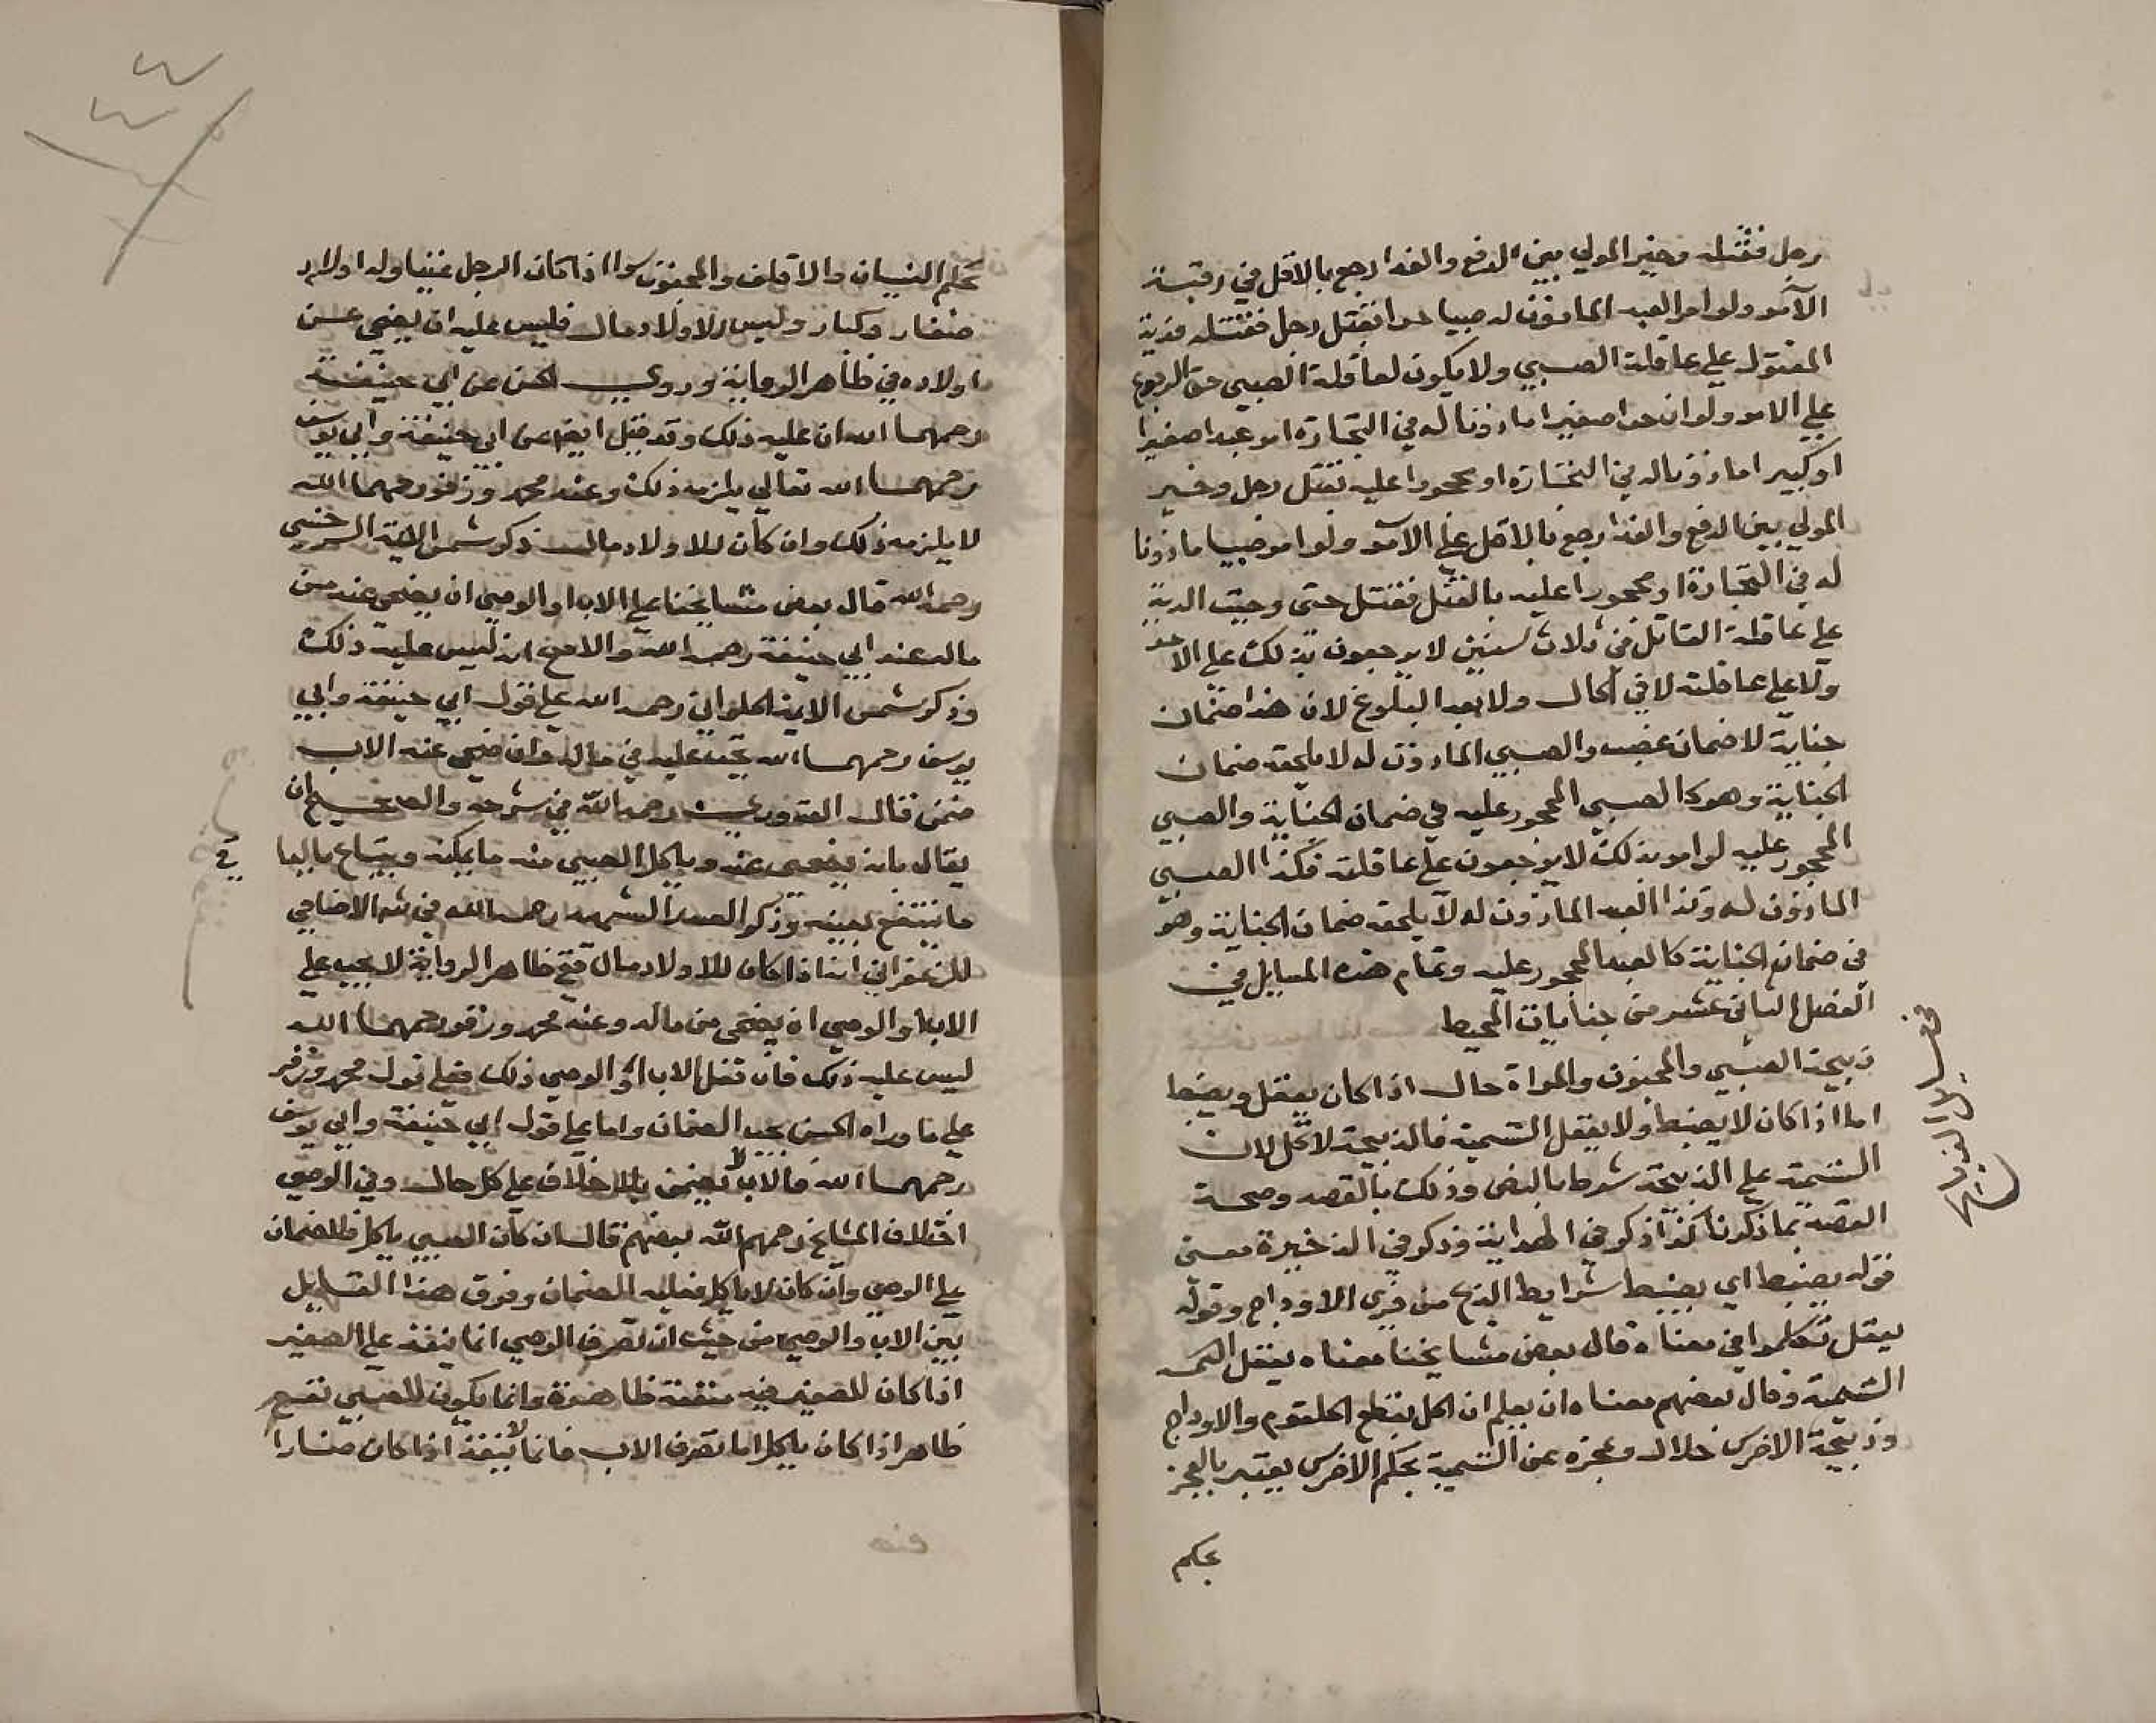 رجل فقتله وخير المولي بين الدفع والفدا رجع بالاقل في رقبة
الآمر ولو امر العبد الماذون له صبيا حرا بقتل رجل فقتله فدية
المقتول علي عاقلة الصبي ولا يكون لعاقلة الصبي حق الرجوع
علي الامر ولو ان حرا صغيرا ماذونا له في التجارة امر عبدا صغيرا
او كبيرا ماذونا له في التجارة او محجورا عليه بقتل رجل وخير
المولي بين الدفع والفدا رجع بالاقل علي الآمر ولو امر صبيا ماذونا
له في التجارة او محجورا عليه بالقتل فقتل حتى وجبت الدية
علي عاقلة القاتل في ثلاث سنين لا يرجعون بذلك علي الامر
ولا علي عاقلته لا في الحال ولا بعد البلوغ لان هذا ضمان
جناية لا ضمان غصب والصبي الماذون له لا يلحقه ضمان
الجناية وهو كالصبي المحجور عليه في ضمان الجناية والصبي
المحجور عليه لو امر بذلك لا يرجعون علي عاقلته فكذا الصبي
الماذون له وكذا العبد الماذون له لا يلحقه ضمان الجناية وهو
في ضمان الجناية كالعبد المحجور عليه وتمام هذه المسايل في
الفصل الثاني عشر من جنايات المحيط
ذبيحة الصبي والمجنون والمراة حال اذا كان يعقل ويضبط
اما اذا كان لا يضبط ولا يعقل التسمية فالذبيحة لا تحل لان
التسمية علي الذبيحة شرط بالنص وذلك بالقصد وصحة
القصد بما ذكرنا كذا ذكر في الهداية وذكر في الذخيرة معنى
قوله يضبط اي يضبط شرايط الذبح من فري الاوداج وقوله
يعقل تكلموا في معناه قال بعض مشايخنا معناه يعقل
التسمية وقال بعضهم معناه ان يعلم ان الحل بقطع الحلقوم والاوداج
وذبيحة الاخرس حلال وعجزه عن التسمية بحكم الاخرس يعتبر بالعجز
بحكم
بحكم النسيان والاقلف والمجنون سوا اذا كان الرجل غنيا وله اولاد
صغار وكبار وليس للاولاد مال فليس عليه ان يضحي عن
اولاده في ظاهر الرواية وروى الحسن عن ابي حنيفة
رحمهما الله ان عليه ذلك وقد قيل ايضا عن ابي حنيفة وابي يوسف
رحمهما الله تعالي يلزمه ذلك وعند محمد وزفر رحمهما الله
لا يلزمه ذلك وان كان للاولاد مال ذكر شمس الايمة السرخسي
رحمه الله قال بعض مشايخنا علي الاب او الوصي ان يضحي عنه من
ماله عند ابي حنيفة رحمه الله والاصح انه ليس عليه ذلك
وذكر شمس الايمة الحلواني رحمه الله علي قول ابي حنيفة وابي
يوسف رحمهما الله يجب عليه في ماله وان ضحي عنه الاب
ضمن قال القدوري رحمه الله في شرحه والصحيح ان
يقال بانه يضحى عنه وياكل الصبي منه ما يمكنه ويبتاع بالبا
في
ما ينتفع بعينه وذكر الصدر الشهيد رحمه الله في شرح الاضاحي
للزعفراني انه اذا كان للاولاد مال ففي ظاهر الرواية لا يجب علي
الاب او الوصي ان يضحي من ماله وعند محمد وزفر رحمهما الله
ليس عليه ذلك فان فعل الاب او الوصي ذلك فعلي قول محمد وزفر
علي ما رواه الحسن يجب الضمان واما علي قول ابي حنيفة وابي يوسف
رحمهما الله فالاب لا يضمن بلا خلاف علي كل حال وفي الوصي
اختلاف المشايخ رحمهم الله بعضهم قال ان كان الصبي ياكل فلا ضمان
علي الوصي وان كان لا ياكل فعليه الضمان وفرق هذا القايل
بين الاب والوصي من حيث ان تصرف الوصي انما ينفذ علي الصغير
اذا كان للصغير فيه منفعة ظاهرة وانما يكون للصبي نفع
ظاهر اذا كان ياكل اما تصرف الاب فانما لا ينفذ اذا كان ضارا